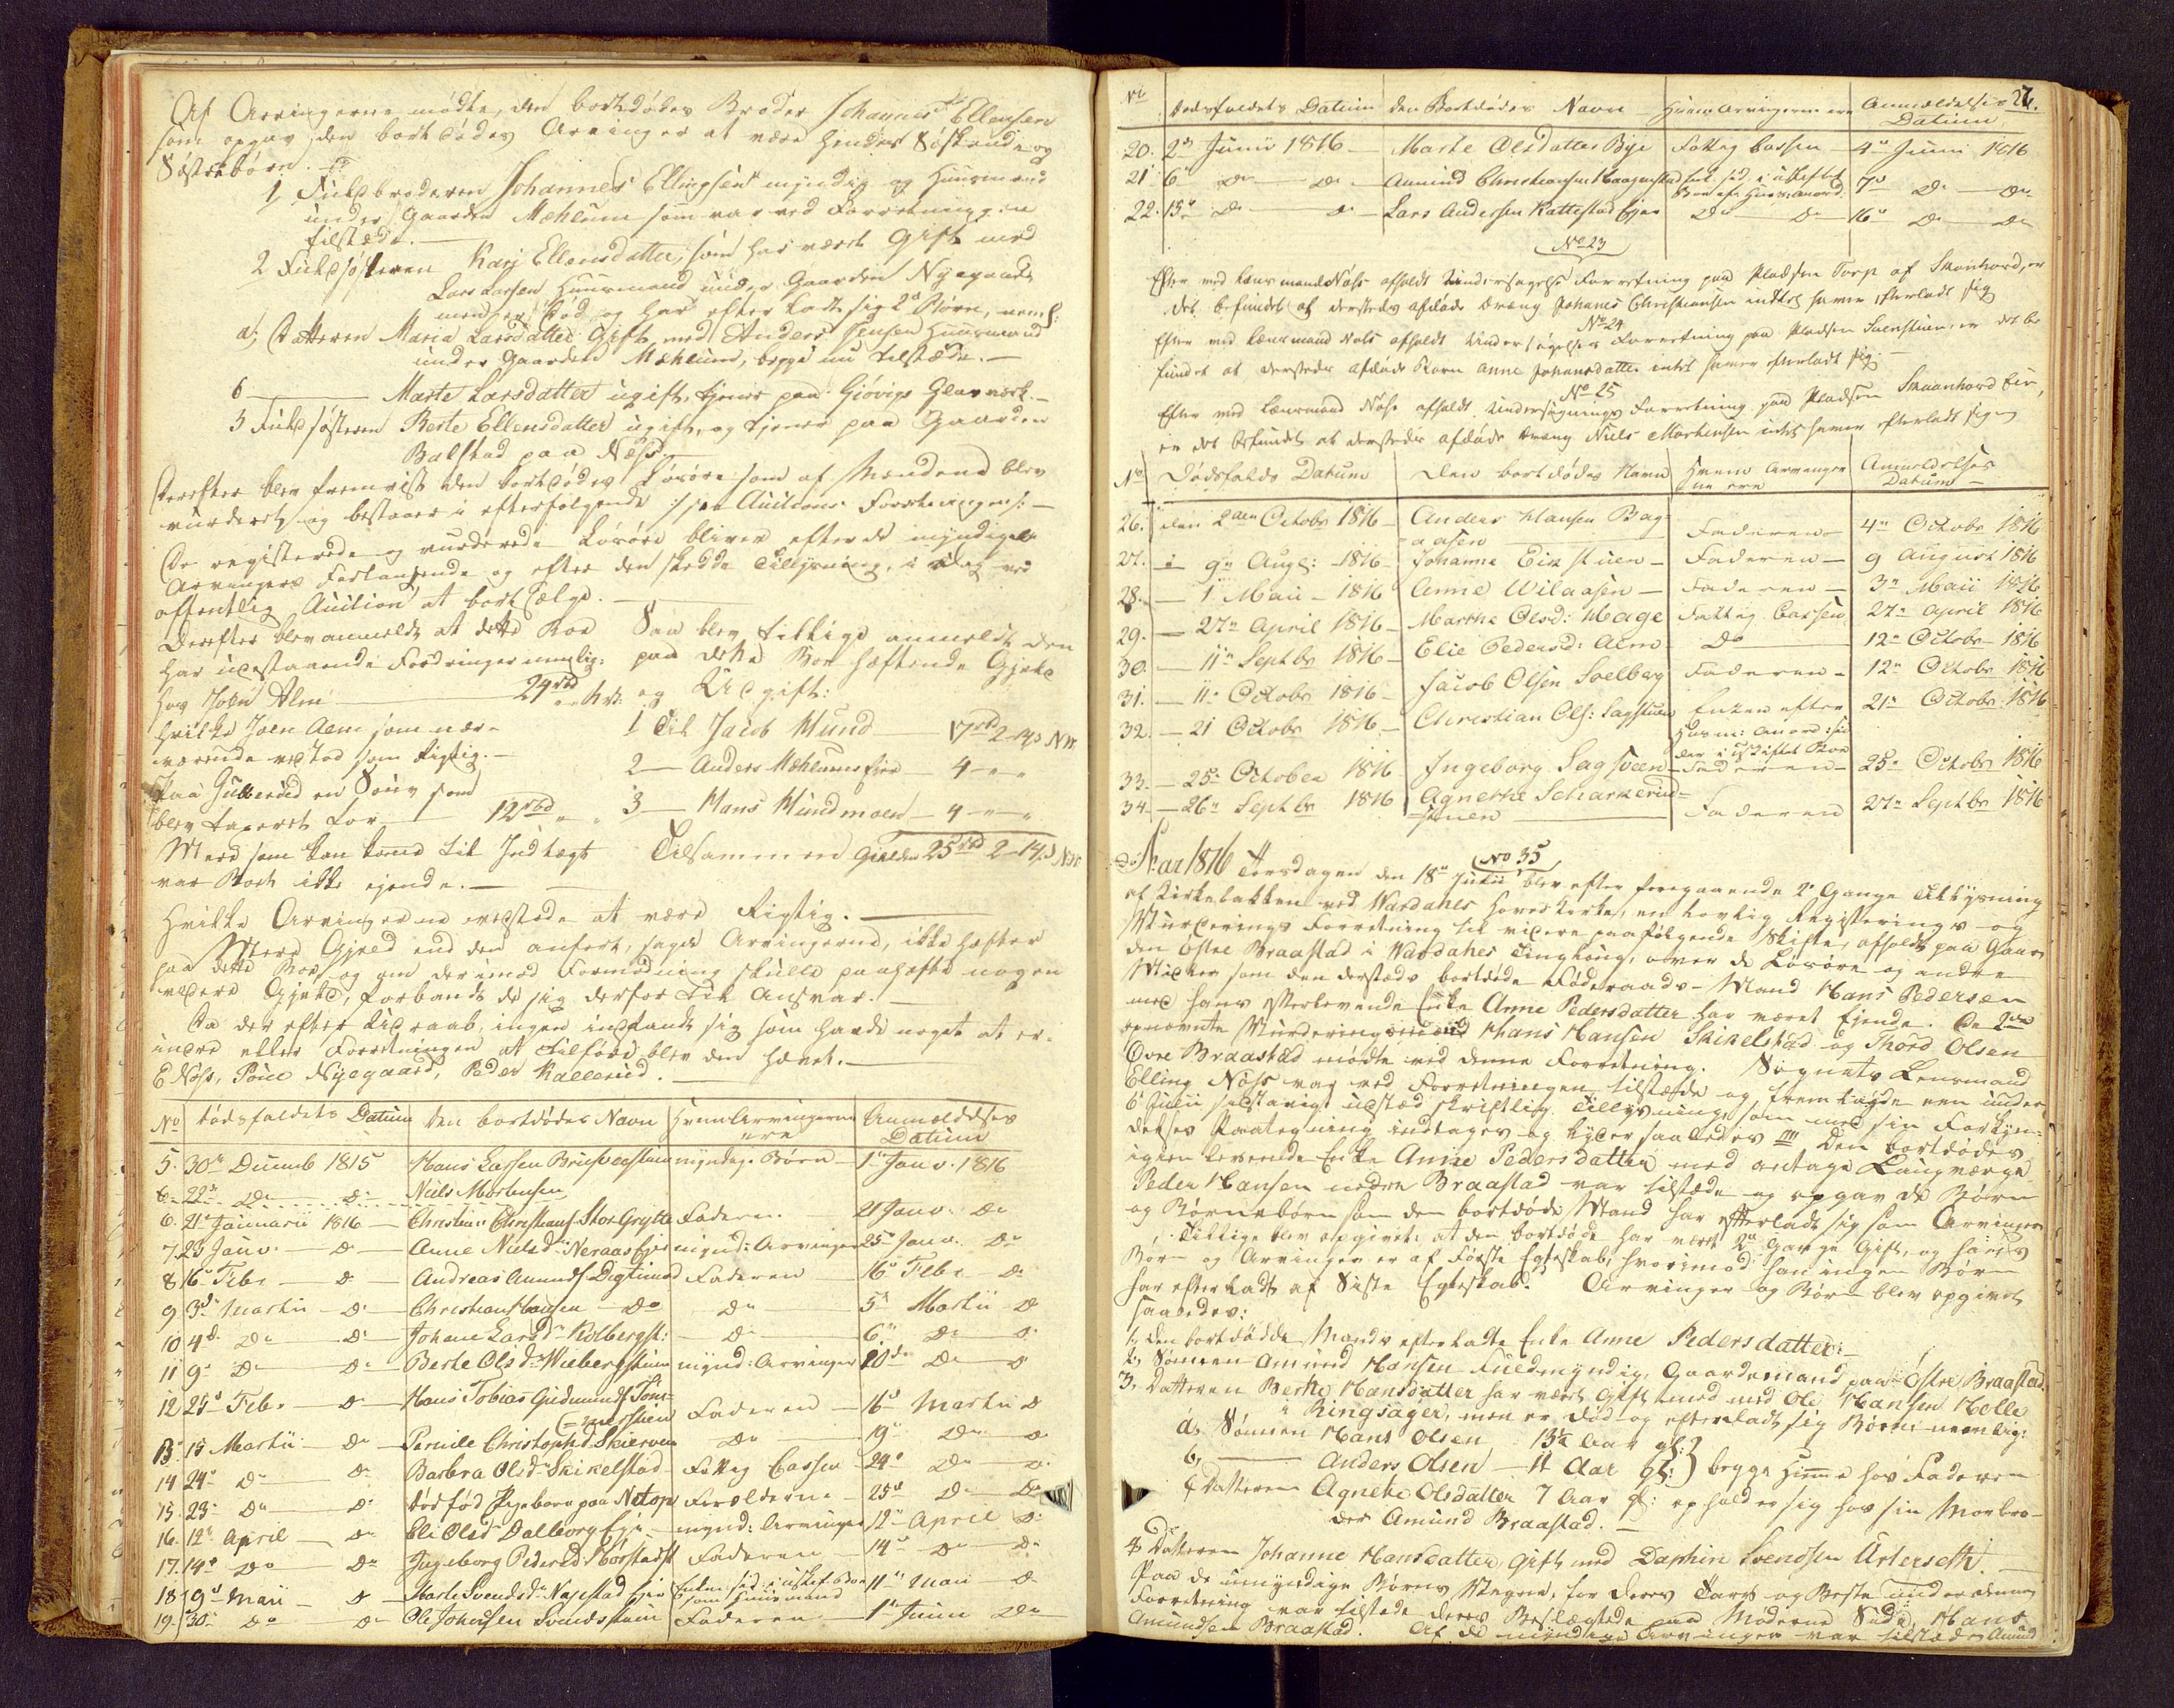 Af Arvingerne mødte, den bortdødes Broder Johannes Ellensen
som opgav den bortdødes Arvinger at være hendes Søskende og
Søsterbørn.
1, Fuldbroderen Johannes Ellingsen myndig og Huusmand
under Gaarden Mæhlum som var ved Forretningen
tilstæde.
2 Fuldsøsteren Kari Ellensdatter, som har været Gift med
Lars Larsen Huusmand under Gaarden Nyegaard
men er død og har efterladt sig 2 Børn, neml:
a, Datteren Maria Larsdatter Gift med Anders Jensen Huusmand
under Gaarden Mæhlum, begge nu tilstæde.
b Marte Larsdatter ugift, tjener paa Gjøvigs Glasværk.
3 Fuldsøsteren Berte Ellensdatter ugift, og tjener paa Gaarden
Balstad paa Næss.
Derefter blev fremvist den bortdødes Løsøre som af Mændene blev
vurderet og bestaaer i efterfølgende /: see Auctions Forretningen :/
De registrerede og vurderede Løsøre bliver efter de myndige
Arvingers Forlangende og efter den skedde Tillysning, i Dag ved
offentlig Auction at bortsælge.
Derefter blev anmeldt at dette Boe
har udestaaende Fordringer nemlig:
hos Joen Alm 24 rbd
hvilke Joen Alm som nær-
værende vedstod som Rigtig.
Paa Gullerud en Souv som
blev taxeret for 12 rbd
Meere som kan komme til Indtægt
var Boet ikke ejende.
Saa blev tillige anmeldt den
paa dette Boe hæftende Gjeld
og Udgift:
1 Til Jacob Hund 17 rbd 2 14 s NV.
2 Anders Mæhlumsejer 4 " "
3 Hans Hundmoen 4 " "
Tilsammen Gielden 25 rbd 2 14 s NV.
Hvilke Arvingerne vedstode at være Rigtig.
Mere Gjeld end den anført, sagde Arvingerne, ikke hæfter
paa dette Boe, og om derimod Formodning skulle paahæfte nogen
videre Gjeld, forbandt de sig derfor til Ansvar.
Da der efter Udraab, ingen indfandt sig som havde noget at er-
indre eller Forretningen at Tilføre blev den hævet.
E Nøss, Poul Nyegaard, Peder Kallerud.
No Dødsfaldets Datum Den bortdødes Navn Hvem Arvingerne ere Anmeldelses Datum
5. 30te Decemb 1815 Hans Larsen myndige Børn 1te Janv. 1816
6. 22de Do Do Niels Mortensen
6. 21de Januarii 1816 Christian Christians. Stor Grytte Faderen 21 Janv. Do
7 23 Janv. Do Anne Nielsd. Neraasejer mynd: Arvinger 25de Janv. Do
8 16de Febr Do Andreas Amunds. Degtimed Faderen 16de Febr Do
9 3de Martii Do Christian Hansen Do Do 5te Martii Do
10 4de Do Do Johane Larsd. Kolbergst: Do 6te Do Do
11 9de Do Do Berte Olsd. Wiebergstuen mynd: Arvinger 10de Do Do
12 25de Febr. Do Hans Tobias Gudmunds. Tom-
merstuen Faderen 16de Martii Do
13 15 Martii Do Pernile Christophd. Skierven Do 19de Do Do
14 24de Do Do Barbra Olsd. Skikelstad Fattig Cassen 24de Do Do
15. 23de Do Do Dødfød Pigebarn paa Netop Forælderne 25de Do Do
16. 12te April Do Eli Olsd. Dalborg Eje mynd: Arvinger 12te April Do
17. 14de Do Do Ingeborg Pedersd. Hørstadst Faderen 14de Do Do
18. 9de Maii Do Marte Svendsd. Næsestad Ejer Enken sid. i uskift. Boe
som Huusmand 11te Maii Do
19. 30te Do Do Ole Johansen Svendstuen Faderen 1te Junii Do
27.
No Dødsfaldets Datum Den Bortdødes Navn Hvem Arvingerne ere Anmeldelses Datum
20. 2den Junii 1816 Marte Olsdatter Bye Fattig Cassen 4de Junii 1816
21 6te Do Do Amund Christiansen Haagenstad Enk. sid. i uskiftet
Boe eft. Huusm: anord. 7de Do Do
22. 15de Do Do Lars Andersen Kattestad Ejer Do Do 16de Do Do
No 23
Efter ved Lensmand Nøss afholdt Undersøgelses Forretning paa Pladsen Torp af Skonhord, er
det befundet at dersteds afdøde Dræng Johanes Christiansen intet haver efterladt sig
No 24
Efter ved Lænsmand Nøss afholdt Undersøgelses Forretning paa Pladsen Svenstuen, er det be-
fundet at dersteds afdøde Barn Anne Johansdatter intet haver efterladt sig.
No 25
Efter ved Lænsmand Nøss afholdt Undersøgnings Forretning paa Pladsen Skaanhord Eie,
er det befundet at dersteds afdøde Dræng Niels Mortensen intet haver efterladt sig
No Dødsfalds Datum Den bortdødes Navn Hvem Arvinger
ne ere Anmeldelses Datum
26. den 2den Octobr 1816 Anders Hansen Bag-
aasen Faderen 4de Octobr 1816
27. i 9de Aug: 1816 Johanne Eikstuen Faderen 9 August 1816
28. 1 Maii 1816 Anne Wilaasen Faderen 3de Maii 1816
29. 27de April 1816 Marthe Olsd: Hage Fattig Cassen 27de April 1816
30. 11te Septbr 1816 Elie Pedersd: Alm Do 12te Octobr 1816
31. 11te Octobr 1816 Jacob Olsen Soelberg Faderen 12te Octobr 1816
32. 21 Octobr 1816 Christian Ols: Sagstuen Enken efter
Husm: Anord: sid
der i uskiftet Boe 21de Octobr 1816
33. 25de October 1816 Ingeborg Sagsveen Faderen 25de Octobr 1816
34. 26de Septbr 1816 Agnethe Scharkerud-
stuen Faderen 27de Septbr 1816
No 35
Aar 1816 Torsdagen den 18de Julii blev efter foregaaende 2de Gange Tillysning
af Kirkebakken ved Wardahls Hoved Kirke, en lovlig Registrerings og
Wurderings Forretning til videre paafølgende Skifte, afholdt paa Gaar-
den Østre Braastad i Wardahls Tinglaug, over de Løsøre og andre
Midler som den dersteds bortdøde Føderaads-Mand Hans Pedersen
med hans efterlevende Enke Anne Pedersdatter har været Ejende. De 2de
opnævnte Wurderingsmænd Hans Hansen Skikelstad og Thord Olsen
Øvre Braastad mødte ved denne Forretning. Sognets Lensmand
Elling Nøss var ved Forretningen tilstæde og fremlagde en under
6te Julii sidstavigt udstæd skriftlig Tillysning som med sin Forkyn-
delses Paategning indtages og lyder saaledes Den bortdødes
igien levende Enke Anne Pedersdatter med antagne Laugværge
Peder Hansen nedre Braastad var tilstæde og opgav de Børn
og Børnebørn som den bortdøde Mand har efterladt sig som Arvinger
Tillige blev opgivet at den bortdøde har været 2de Gange Gift, og hans
Børn og Arvinger er af Første Egteskab, hvorimod han ingen Børn
har efterladt af Sidste Egteskab. Arvinger og Børn blev opgivet
saaledes:
1, den bortdødde Mands efterladte Enke Anne Pedersdatter.
2, Sønnen Amund Hansen Fuldmyndig Gaardemand paa Østre Braastad.
3, Datteren Berthe Hansdatter har været Gift med Ole Hansen Molle
i Ringsager, men er død og efterladt sig Børn: nemlig:
a, Sønnen Hans Olsen 13½ Aar gl:
b, Anders Olsen 11 Aar gl:) begge hjemme hos Faderen
c, Datteren Agnethe Olsdatter 7 Aar gl: opholder sig hos sin Morbro-
der Amund Braastad.
4 Datteren Johanne Hansdatter, Gift med Daphin Svendsen Usterseth.
Paa de umyndige Børns Wegne, for deres Tarv og Beste under denne
Forretning var tilstæde deres Beslægtede paa Moderne Side, Hans
Amundsen Braastad. Af de myndige Arvinger var tilstæde Amund